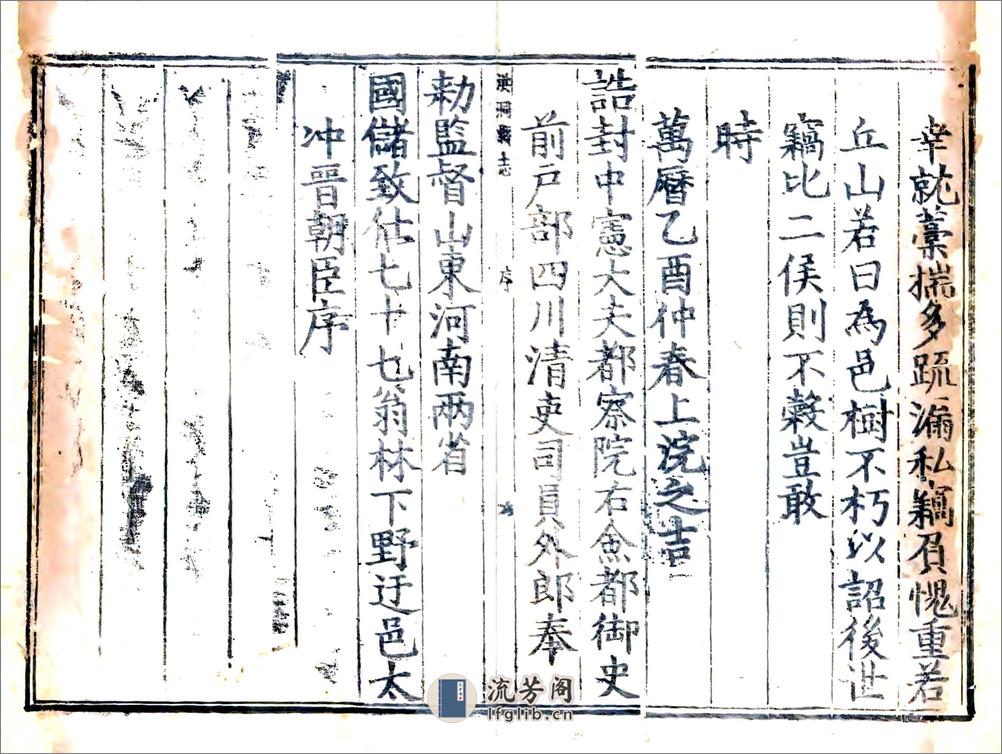 幸就藁揣多疏漏私竊負愧重若
丘山若曰為邑樹不朽以詔後世
竊比二侯則不穀豈敢
時
萬曆乙酉仲春上浣之吉
誥封中憲大夫都察院右僉都御史
前戶部四川清吏司員外郎奉
洪洞縣志 序
勅監督山東河南兩省
國儲致仕七十七翁林下野迂邑太
冲晉朝臣序
流芳阁
lfglib.cn